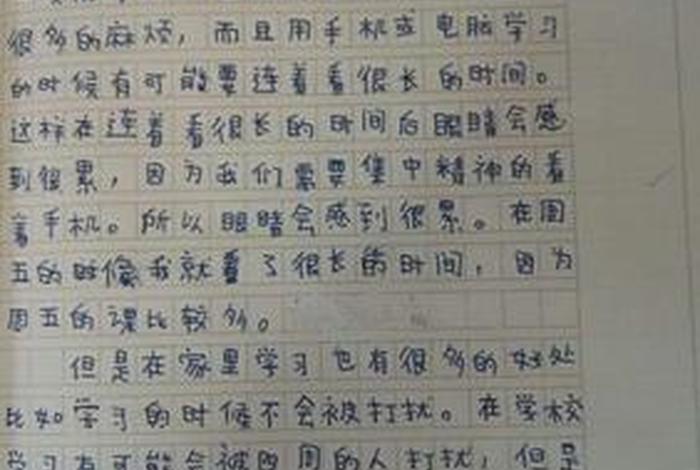 很多的麻烦，而且用手机或电脑学习
的时候有可能要连着看很长的时间。
这样在连着看很长的时间后眼睛会感
到很累，因为我们需要集中精神的看
着手机。所以眼睛会感到很累。在周
五的时候我就看了很长的时间，因为
周五的课比较多。
但是在家里学习也有很多的好处
比如学习的时候不会被打扰。在学校
学习有可能会被四周的人打扰，但是